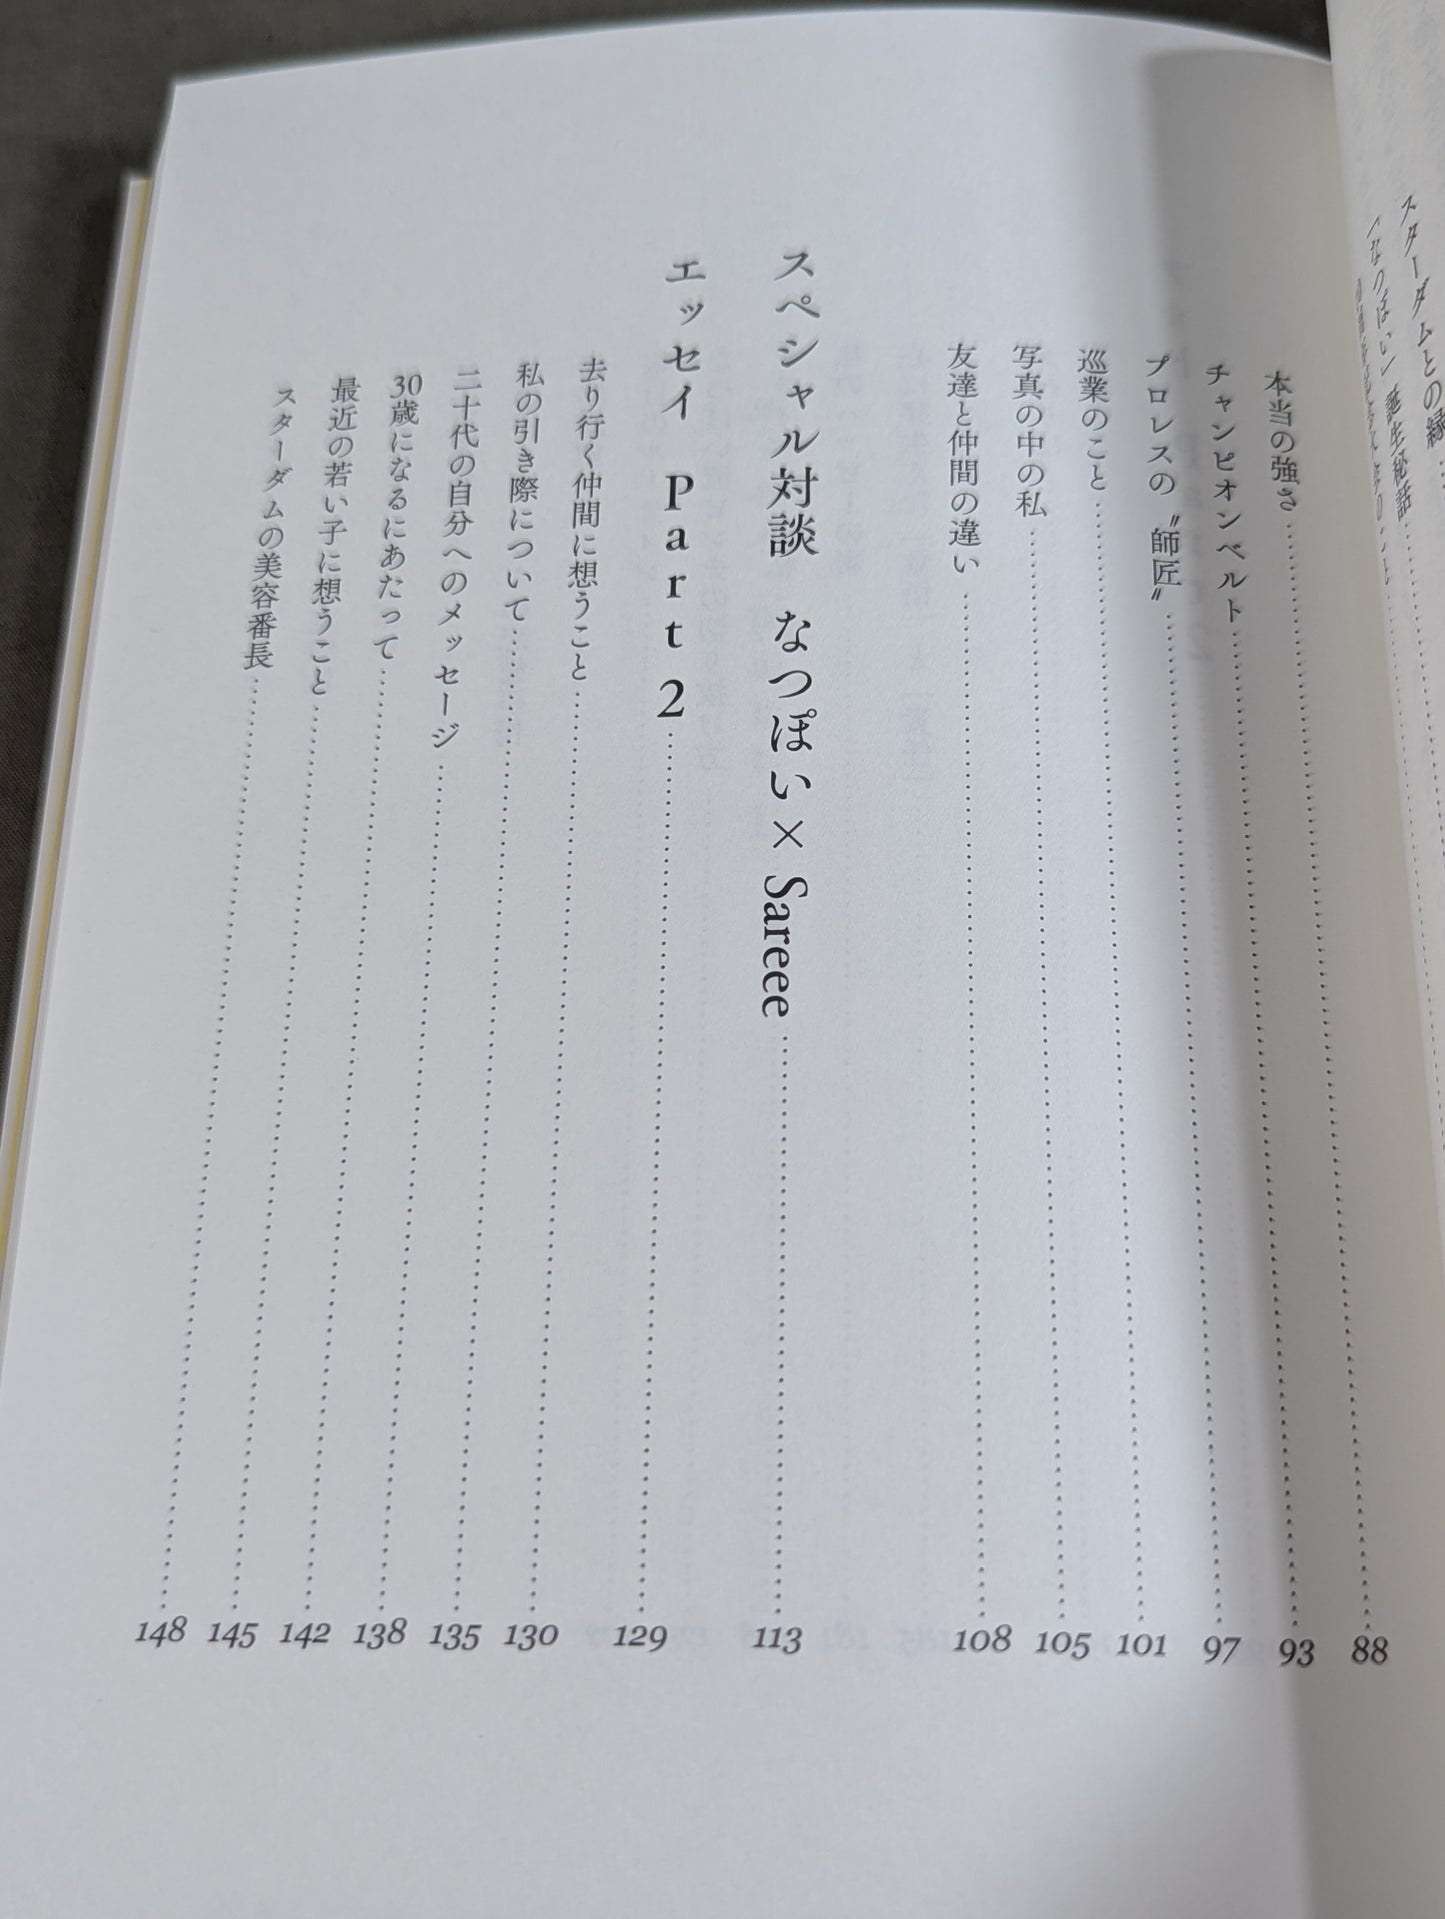 スターダムとの縁…
「なつぽい」誕生秘話
本当の強さ 88
チャンピオンベルト 93
プロレスの〝師匠〟 97
巡業のこと 101
写真の中の私 105
友達と仲間の違い 108
スペシャル対談 なつぽい×Sareee 113
エッセイ Part2 129
去り行く仲間に想うこと 130
私の引き際について 135
二十代の自分へのメッセージ 138
30歳になるにあたって 142
最近の若い子に想うこと 145
スターダムの美容番長 148